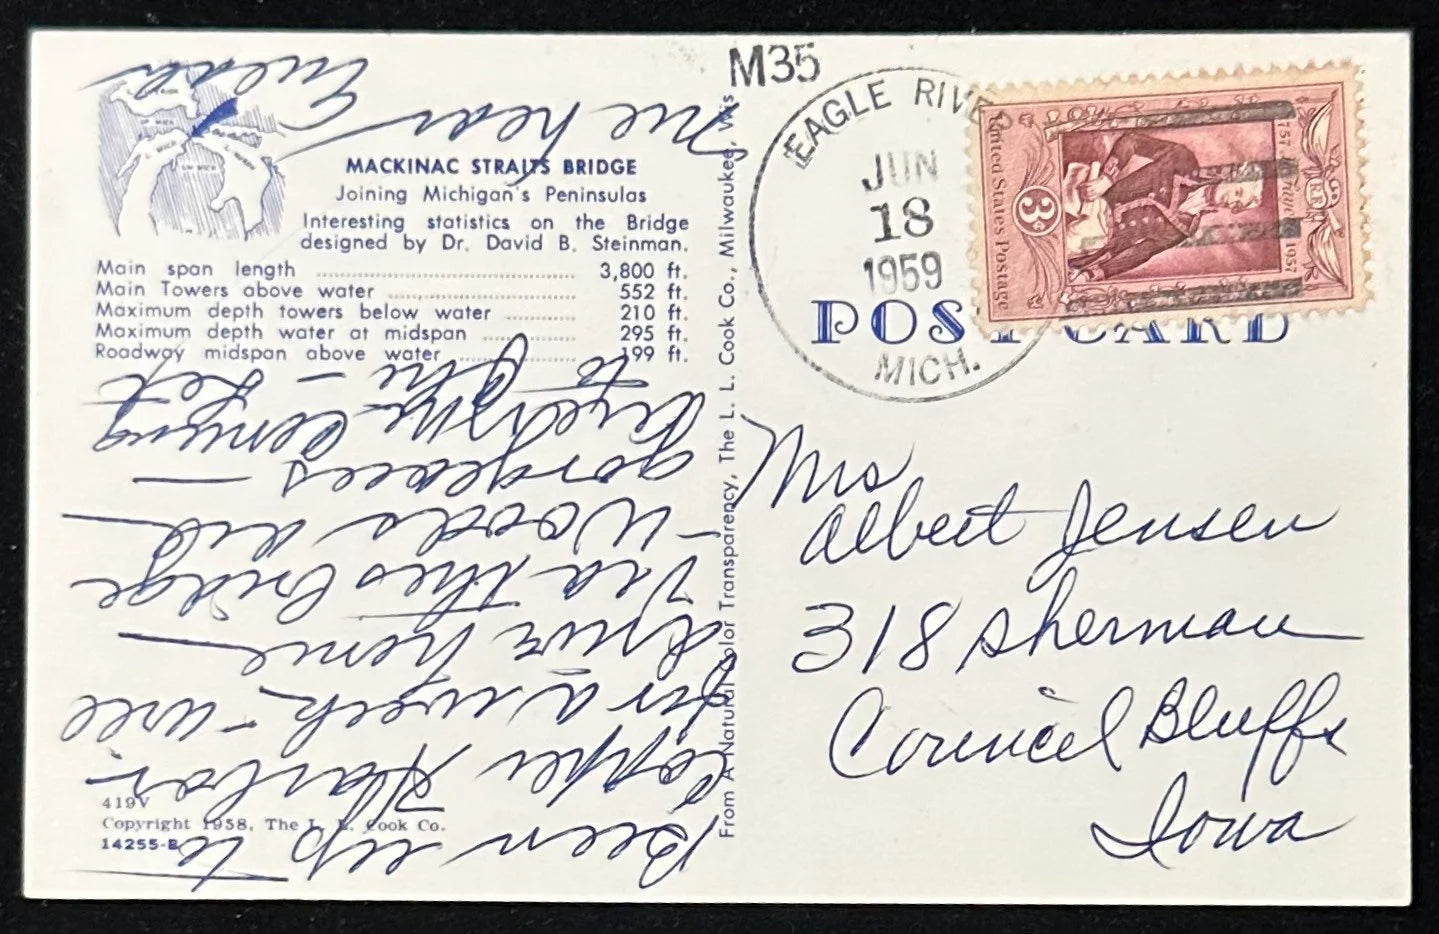 M35
EAGLE RIVE
JUN
18
1959
MICH.
United States Postage
3¢
757
1957
POSTCARD
MACKINAC STRAITS BRIDGE
Joining Michigan's Peninsulas
Interesting statistics on the Bridge
designed by Dr. David B. Steinman.
Main span length ........ 3,800 ft.
Main Towers above water ........ 552 ft.
Maximum depth towers below water ........ 210 ft.
Maximum depth water at midspan ........ 295 ft.
Roadway midspan above water ........ 199 ft.
419V
Copyright 1958, The L. L. Cook Co.
14255-B
From A Natural Color Transparency, The L. L. Cook Co., Milwaukee, Wis
Been up to
Copper Harbor
for a week - will
drive home
via this bridge
- Woods and
gorgeous —
to the - Let
me hear
Mrs
Albert Jensen
318 Sherman
Council Bluffs
Iowa